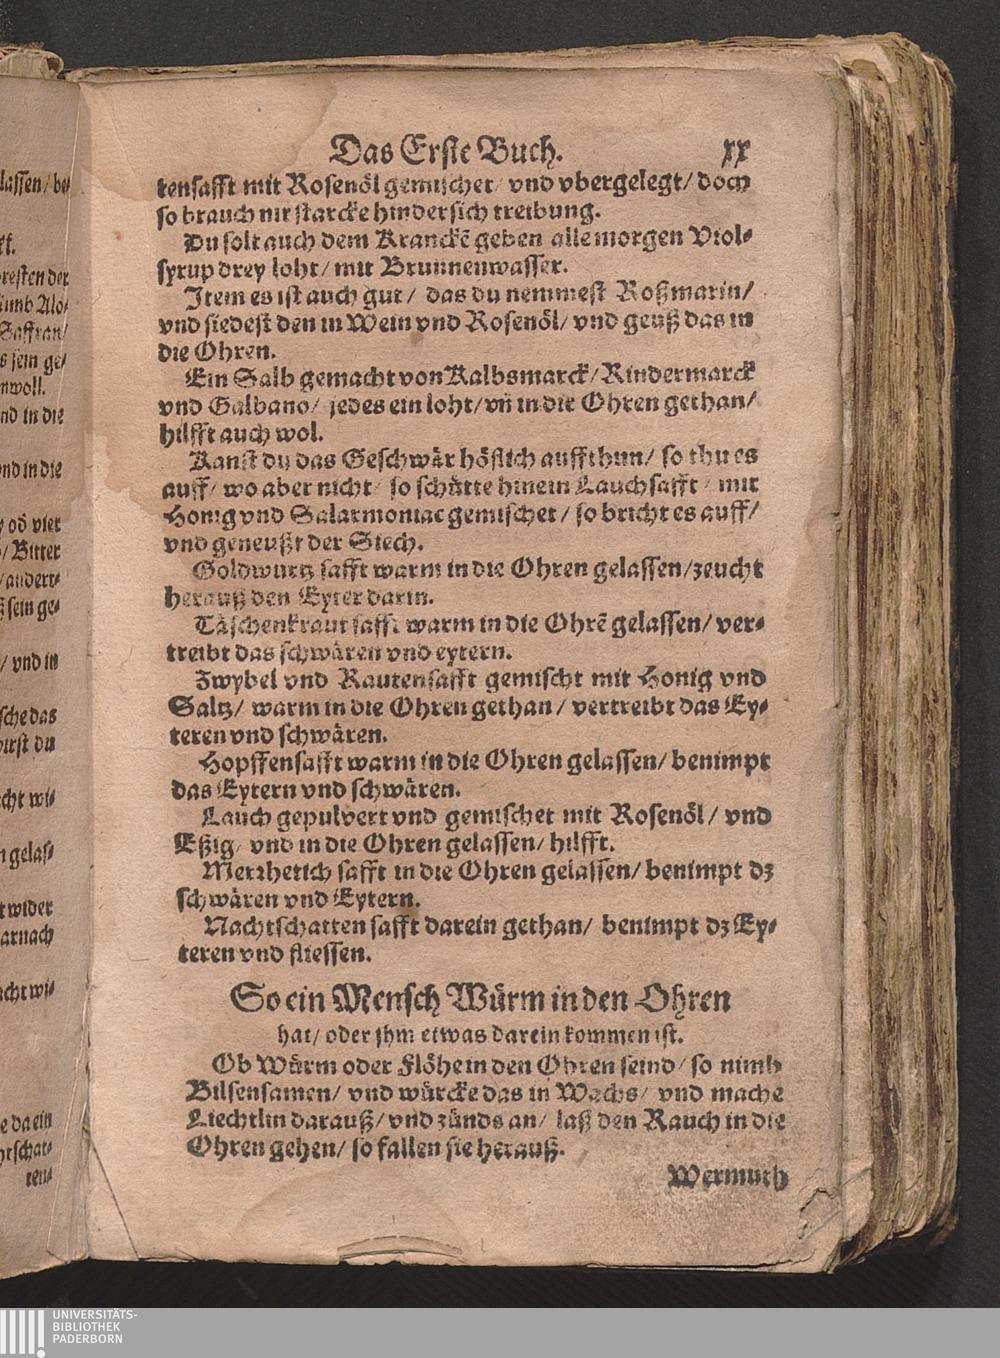 Das Erste Buch. xx
tensafft mit Rosenöl gemischet/ vnd vbergelegt/ doch
so brauch nit starcke hindersich treibung.
Du solt auch dem Kranckẽ geben alle morgen Viol-
syrup drey loht/ mit Brunnenwasser.
Item es ist auch gut/ das du nemmest Roßmarin/
vnd siedest den in Wein vnd Rosenöl/ vnd geuß das in
die Ohren.
Ein Salb gemacht von Kalbsmarck/ Rindermarck
vnd Galbano/ jedes ein loht/ vñ in die Ohren gethan/
hilfft auch wol.
Kanst du das Geschwär höflich auffthun/ so thu es
auff/ wo aber nicht/ so schütte hinein Lauchsafft/ mit
Honig vnd Salarmoniac gemischet/ so bricht es auff/
vnd geneußt der Siech.
Goldwurtz safft warm in die Ohren gelassen/ zeucht
herauß den Eyter darin.
Täschenkraut safft warm in die Ohrẽ gelassen/ ver-
treibt das schwären vnd eytern.
Zwybel vnd Rautensafft gemischt mit Honig vnd
Saltz/ warm in die Ohren gethan/ vertreibt das Ey-
teren vnd schwären.
Hopffensafft warm in die Ohren gelassen/ benimpt
das Eytern vnd schwären.
Lauch gepulvert vnd gemischet mit Rosenöl/ vnd
Eßig/ vnd in die Ohren gelassen/ hilfft.
Merrhetich safft in die Ohren gelassen/ benimpt dz
schwären vnd Eytern.
Nachtschatten safft darein gethan/ benimpt dz Ey-
teren vnd fliessen.
So ein Mensch Würm in den Ohren
hat/ oder jhm etwas darein kommen ist.
Ob Würm oder Flöhe in den Ohren seind/ so nimb
Bilsensamen/ vnd würcke das in Wachs/ vnd mache
Liechtlin darauß/ vnd zünds an/ laß den Rauch in die
Ohren gehen/ so fallen sie herauß.
Wermuth
UNIVERSITÄTS-
BIBLIOTHEK
PADERBORN